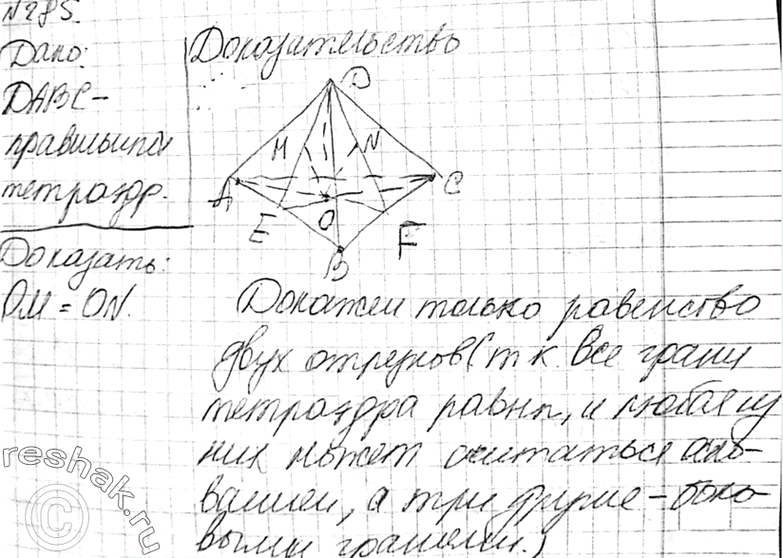 №285.
Дано:
DABC-
правильный
тетраэдр.
Доказать:
OM = ON.
Доказательство
D
M
N
A
C
E
O
F
B
Докажем только равенство
двух отрезков (т.к. все грани
тетраэдра равны, и любая из
них может считаться осно-
ванием, а три другие - боко-
выми гранями.)
©reshak.ru